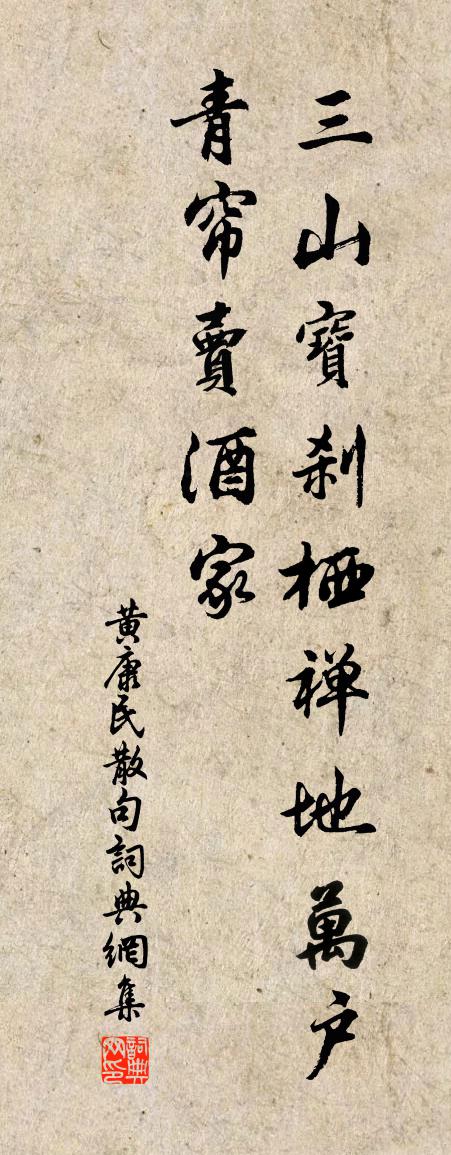 三山寶刹栖禅地萬户
青帘賣酒家
黄康民散句詞典網集
詞典网印